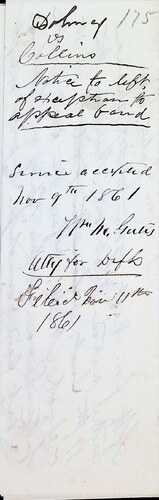 175
vs
Collins
Notice to deft.
of exception to
appeal bond
Service accepted
Nov 9th 1861
Wm M.
Atty for Defts
Filed Nov 11th
1861